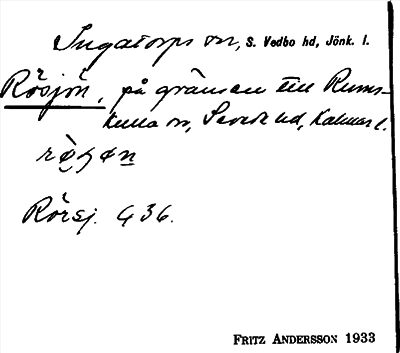 Ingatorps sn, S. Vedbo hd, Jönk. l.
Rösjön, på gränsen till Rums-
kulla sn, Sevede hd, Kalmar l.
Rörsj. G 36.
FRITZ ANDERSSON 1933